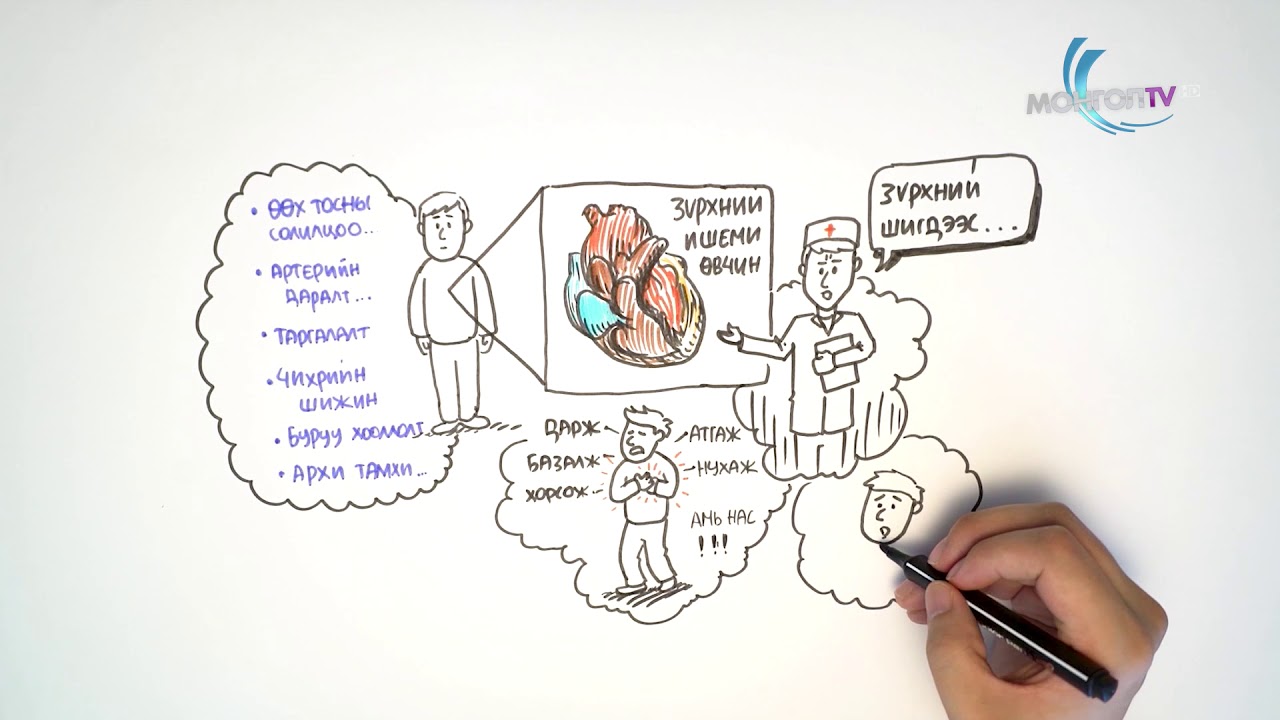 • ӨӨХ ТОСНЫ
СОЛИЛЦОО...
• АРТЕРИЙН
ДАРАЛТ...
• ТАРГАЛАЛТ
• ЧИХРИЙН
ШИЖИН
• БУРУУ ХООЛЛОЛТ
• АРХИ ТАМХИ...
ЗҮРХНИЙ
ИШЕМИ
ӨВЧИН
ЗҮРХНИЙ
ШИГДЭЭС...
ДАРЖ
БАЗАЛЖ
ХОРСОЖ..
АТГАЖ
НУХАЖ
АМЬ НАС
!!!
МОНГОЛTV HD